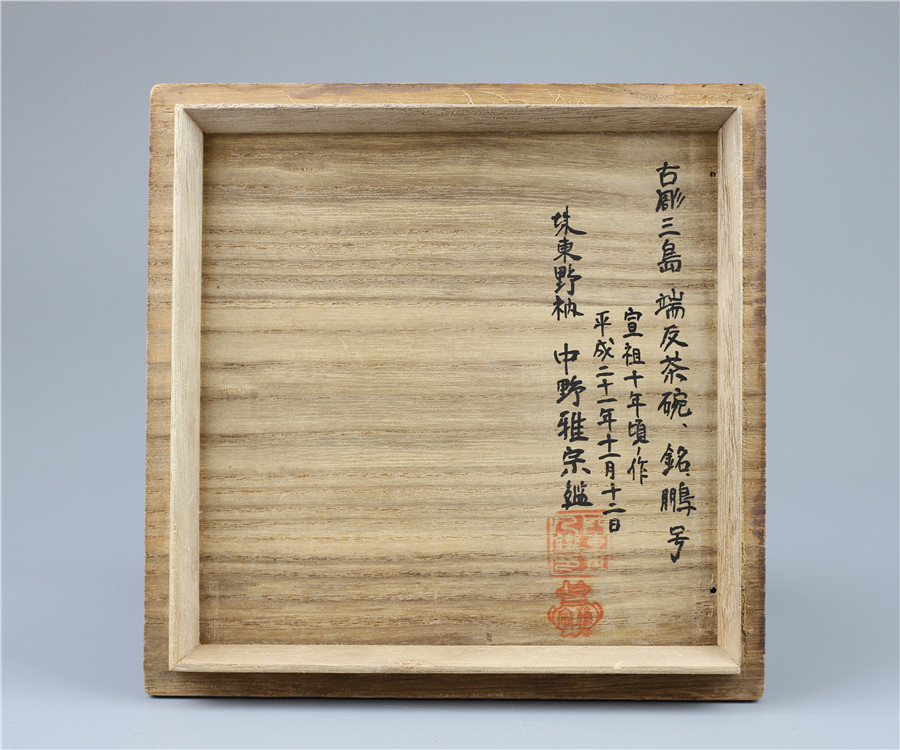 古彫三島 端反茶碗、銘、鵬号
宣祖十年頃ノ作
平成二十一年十一月十二日
埖東野衲 中野雅宗鑑